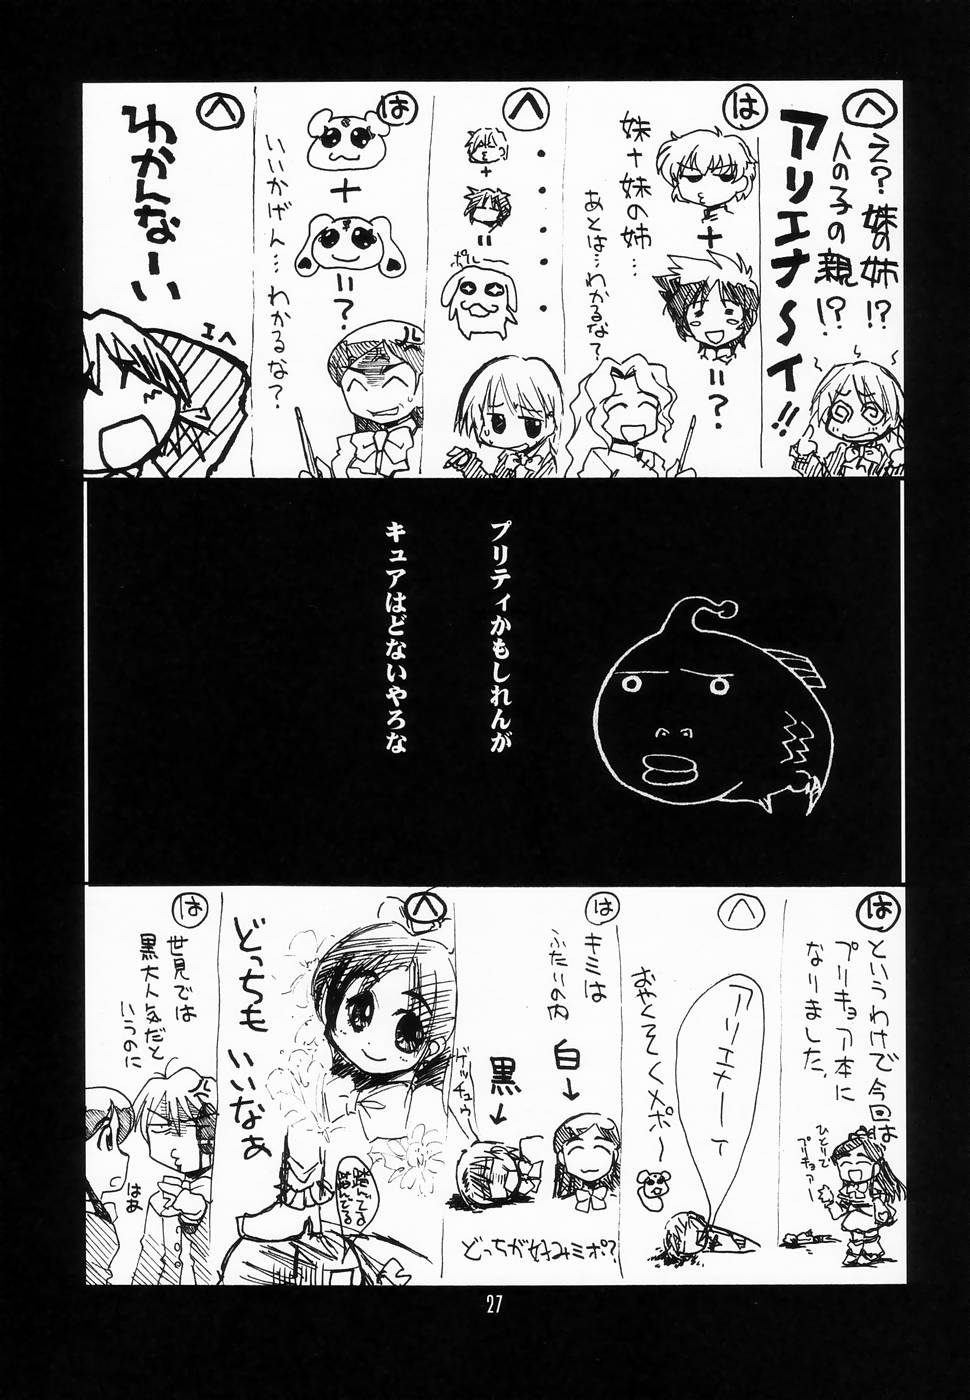 へ
え?妹の姉!?
人の子の親!?
アリエナ〜イ!!
は
妹+妹の姉…
あとは…わかるな?
+
=?
へ
・・・・・・
+
=
ポルー
は
+
=?
いいかげん…わかるな?
へ
わかんなーい
エヘ
プリティかもしれんが
キュアはどないやろな
は
というわけで今回は
プリキュア本に
なりました。
ひとりで
プリキュアー
へ
アリエナーイ
おやくそくメポ〜
は
キミは
ふたりの内
白→
黒→
ゲッチュウ
どっちが好みミポ?
へ
どっちも
いいなぁ
踏んでる
踏んでる
は
世見では
黒大人気だと
いうのに
はぁ
27